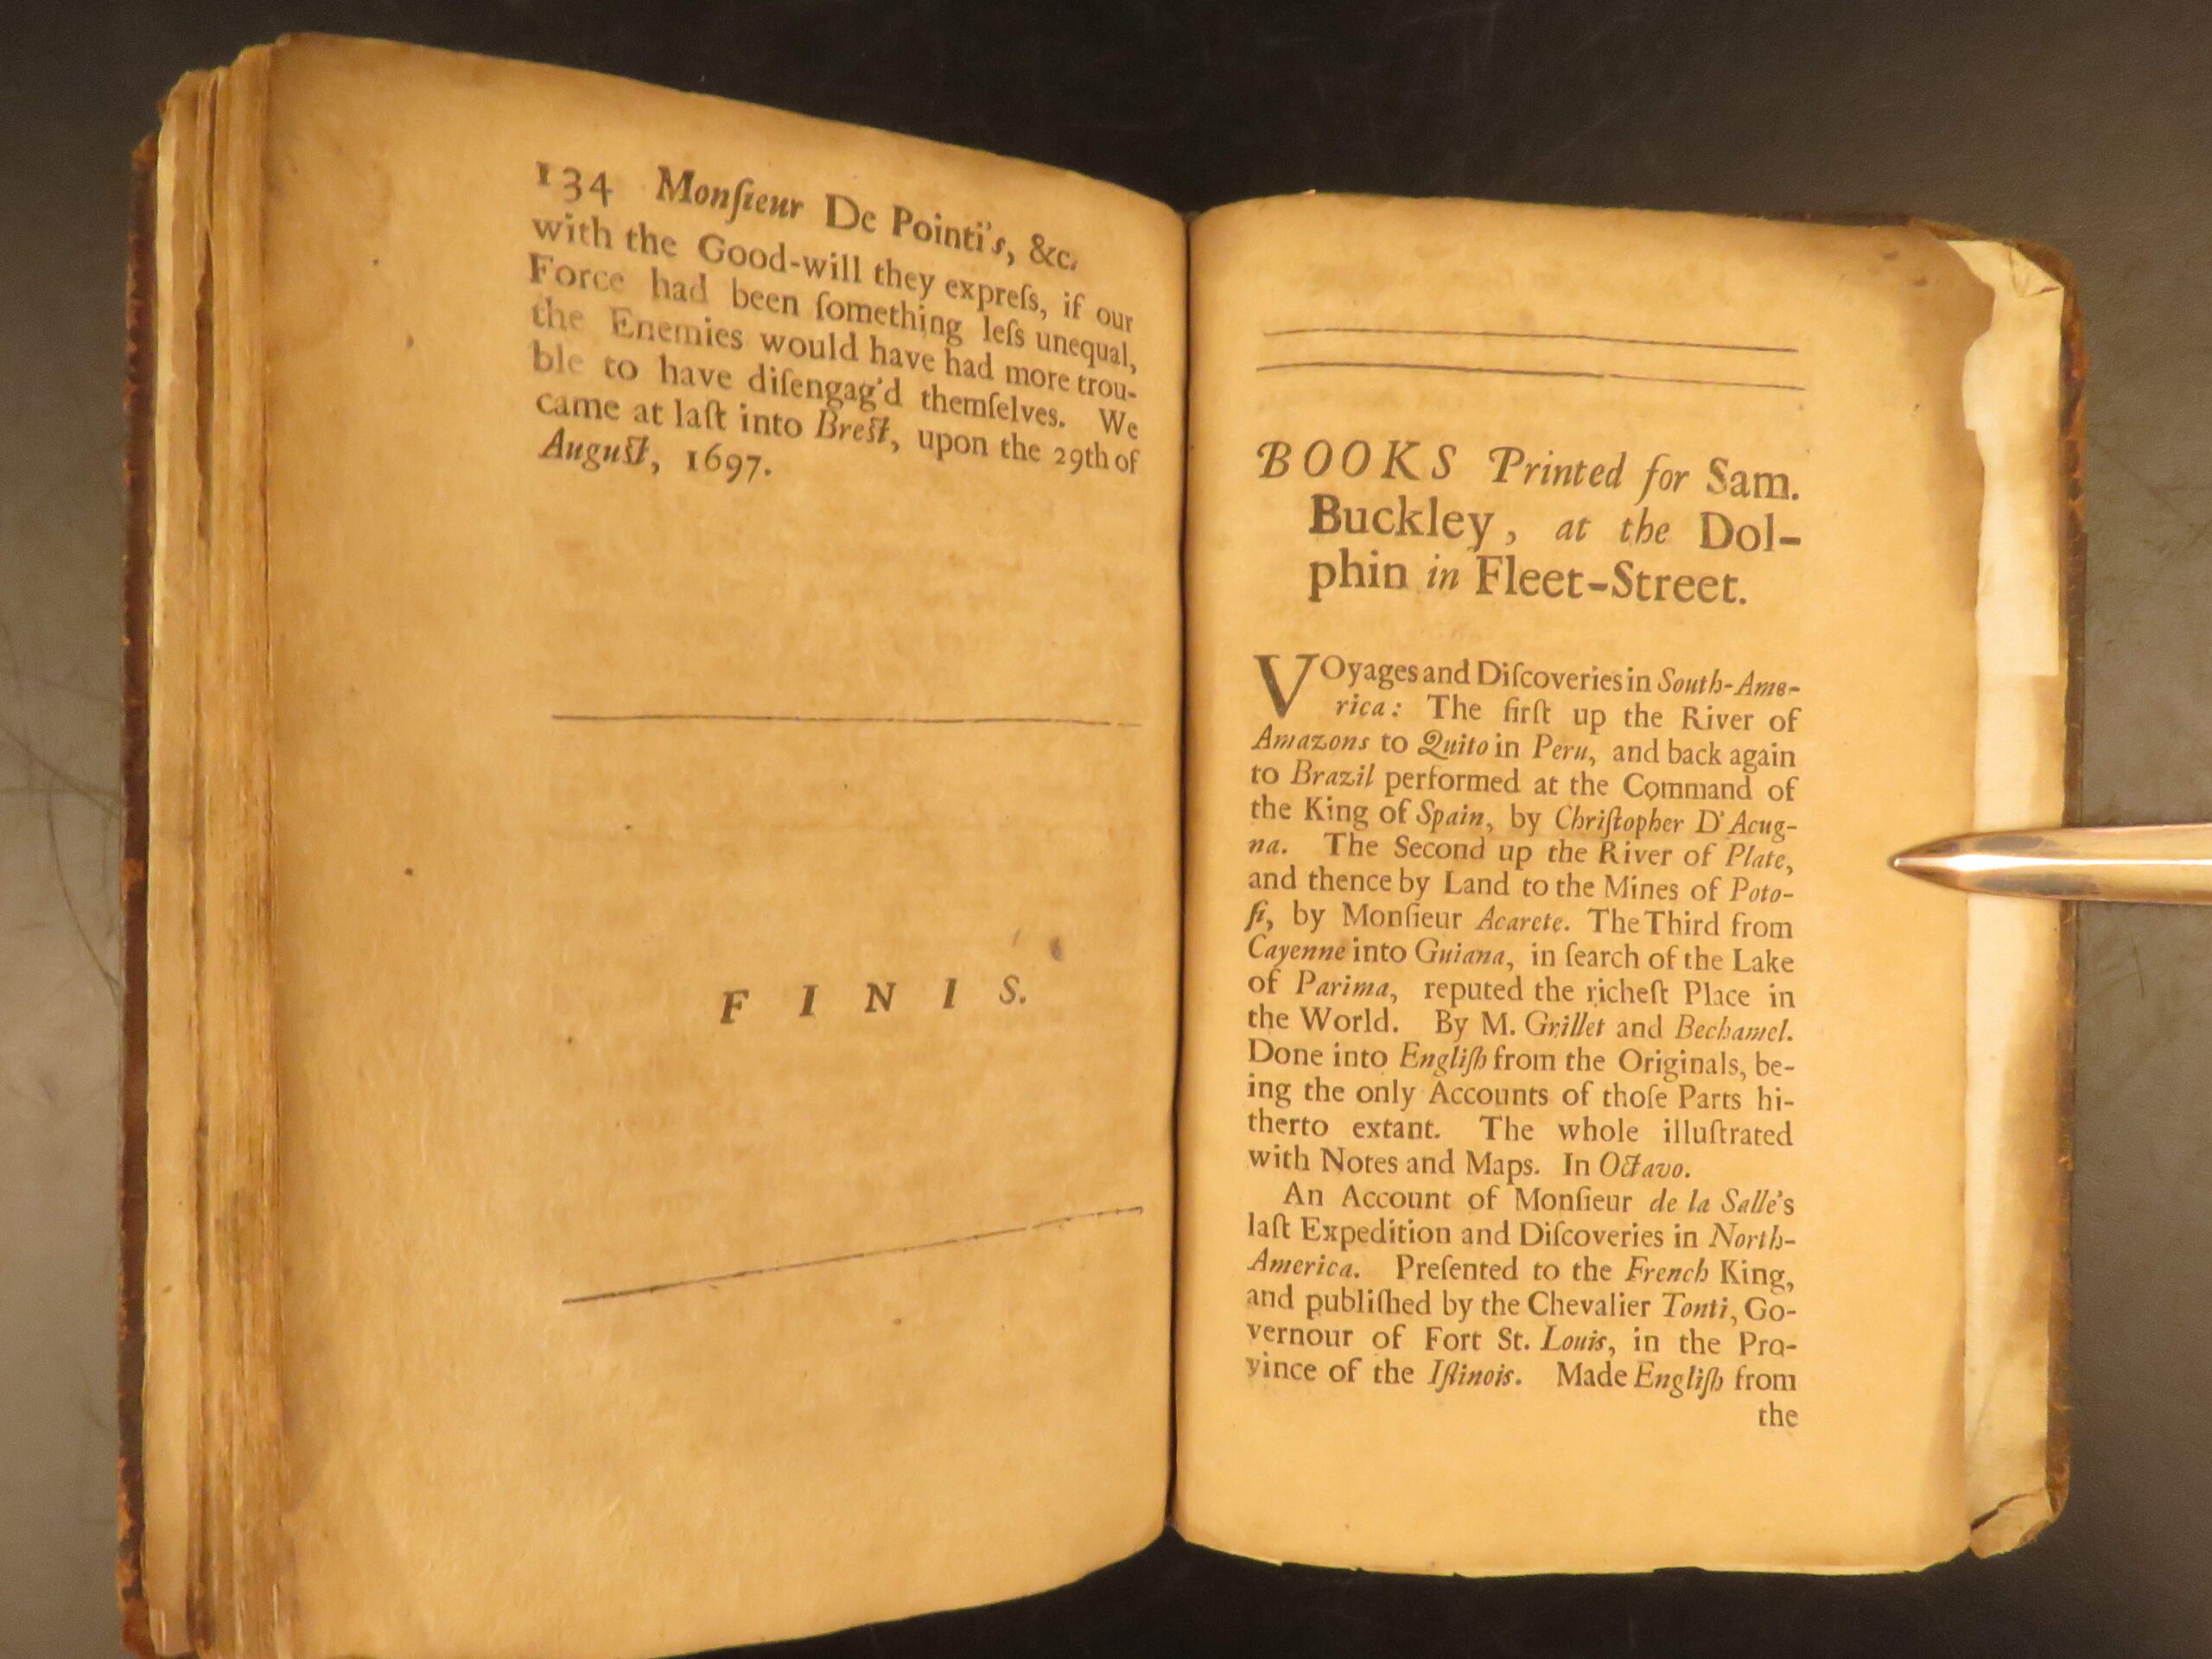 134 Monſieur De Pointi's, &c.
with the Good-will they expreſs, if our
Force had been ſomething leſs unequal,
the Enemies would have had more trou-
ble to have diſengag'd themſelves. We
came at laſt into Breſt, upon the 29th of
Auguſt, 1697.
F I N I S.
BOOKS Printed for Sam.
Buckley, at the Dol-
phin in Fleet-Street.
VOyages and Diſcoveries in South-Ame-
rica: The firſt up the River of
Amazons to Quito in Peru, and back again
to Brazil performed at the Command of
the King of Spain, by Chriſtopher D'Acug-
na. The Second up the River of Plate,
and thence by Land to the Mines of Poto-
ſi, by Monſieur Acarete. The Third from
Cayenne into Guiana, in ſearch of the Lake
of Parima, reputed the richeſt Place in
the World. By M. Grillet and Bechamel.
Done into Engliſh from the Originals, be-
ing the only Accounts of thoſe Parts hi-
therto extant. The whole illuſtrated
with Notes and Maps. In Octavo.
An Account of Monſieur de la Salle's
laſt Expedition and Diſcoveries in North-
America. Preſented to the French King,
and publiſhed by the Chevalier Tonti, Go-
vernour of Fort St. Louis, in the Pro-
vince of the Iſlinois. Made Engliſh from
the